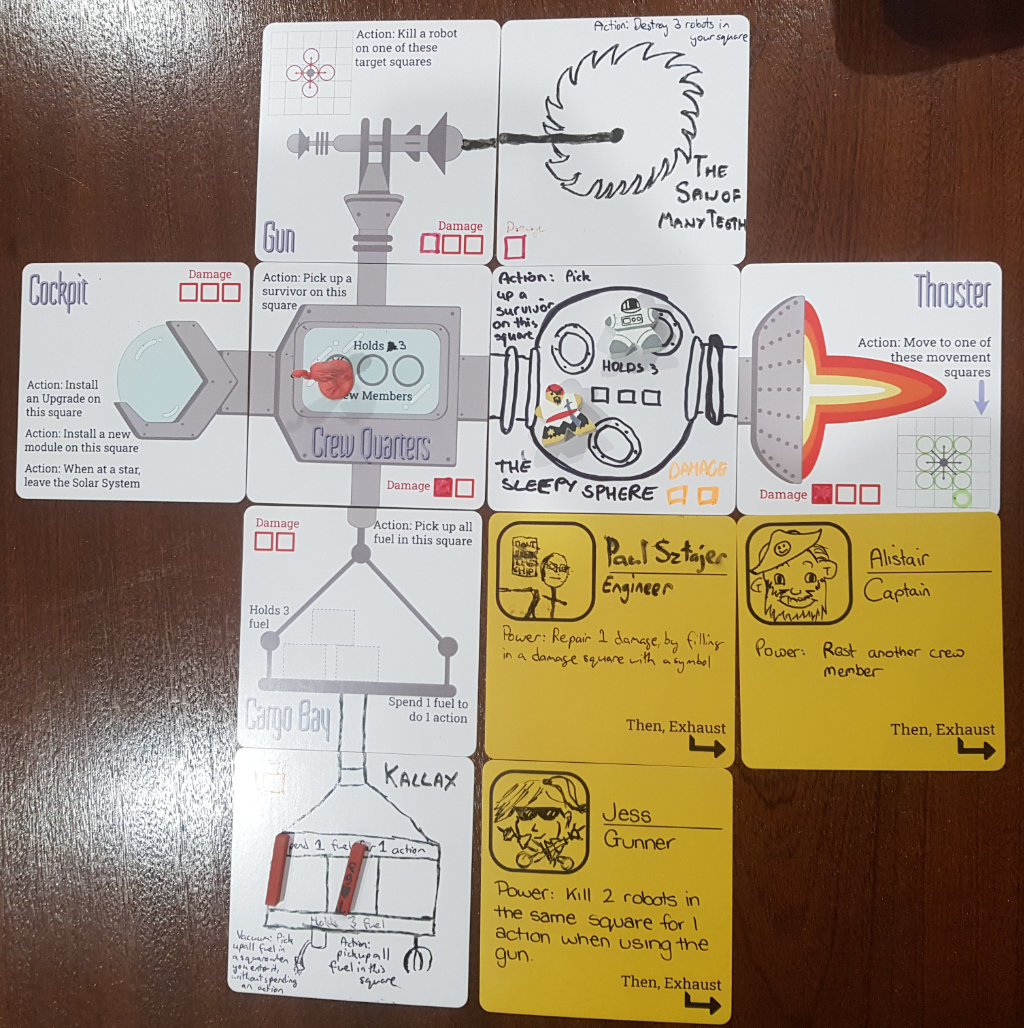 Action: Kill a robot
on one of these
target squares
Gun
Damage
Action: Destroy 3 robots in
your square
THE
SAW OF
MANY TEETH
Damage
Cockpit
Damage
Action: Install
an Upgrade on
this square
Action: Install a new
module on this square
Action: When at a star,
leave the Solar System
Action: Pick up a
survivor on this
square
Holds 3
Members
Crew Quarters
Damage
Action: Pick
up a
survivor
on this
square
HOLDS 3
THE
SLEEPY SPHERE
DAMAGE
Thruster
Action: Move to one of
these movement
squares
Damage
Damage
Action: Pick up all
fuel in this square
Holds 3
fuel
Spend 1 fuel to
do 1 action
Cargo Bay
Paul Sztajer
Engineer
Power: Repair 1 damage, by filling
in a damage square with a symbol
Then, Exhaust
Alistair
Captain
Power: Rest another crew
member
Then, Exhaust
KALLAX
1 fuel for 1 action
Holds 3 fuel
Vacuum: Pick
up all fuel in
a square when
you enter it,
without spending
an action
Action:
pick up all
fuel in this
square
Jess
Gunner
Power: Kill 2 robots in
the same square for 1
action when using the
gun.
Then, Exhaust